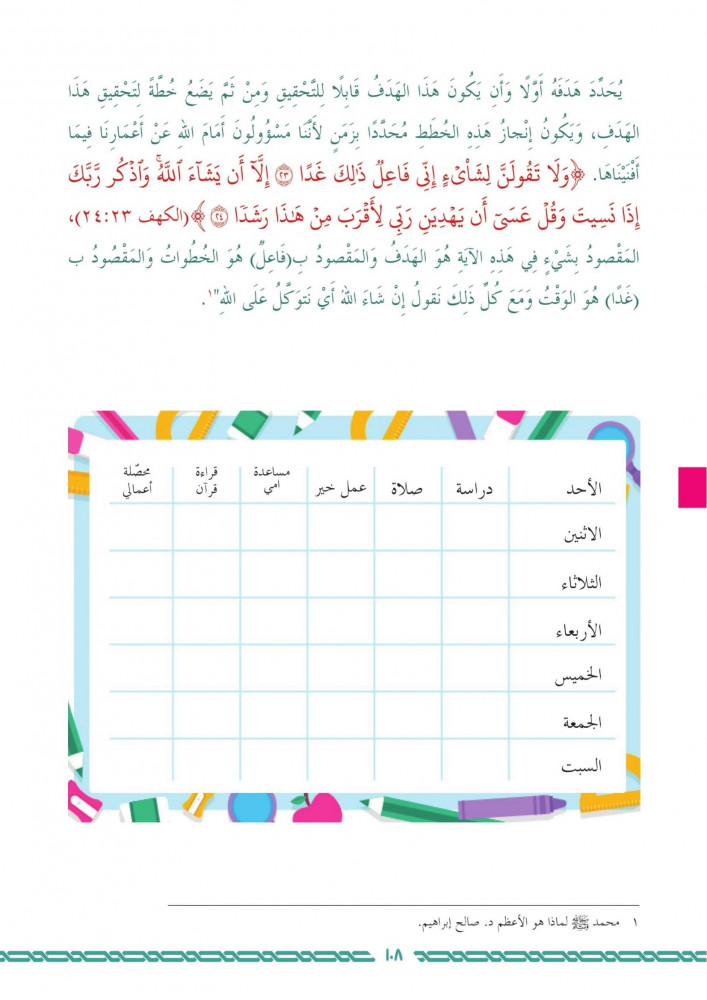 يُحَدِّدَ هَدَفَهُ أَوَّلًا وَأَن يَكُونَ هَذَا الهَدَفُ قَابِلًا لِلتَّحْقِيقِ وَمِنْ ثَمَّ يَضَعُ خُطَّةً لِتَحْقِيقِ هَذَا
الهَدَفِ، وَيَكُونُ إنْجازُ هَذِهِ الخُطَطِ مُحَدَّدًا بِزَمَنٍ لأَنَّنَا مَسْؤُولُونَ أَمَامَ اللهِ عَنْ أَعْمَارِنَا فِيمَا
أَفْنَيْنَاهَا. ﴿وَلَا تَقُولَنَّ لِشَاْيْءٍ إِنِّي فَاعِلٌ ذَٰلِكَ غَدًا ٢٣ إِلَّآ أَن يَشَآءَ ٱللَّهُۚ وَٱذْكُر رَّبَّكَ
إِذَا نَسِيتَ وَقُلْ عَسَىٰٓ أَن يَهْدِيَنِ رَبِّي لِأَقْرَبَ مِنْ هَٰذَا رَشَدًا ٢٤﴾ (الكهف ٢٤:٢٣)،
المَقْصودُ بِشَيْءٍ فِي هَذِهِ الآيَةِ هُوَ الهَدَفُ وَالمَقْصُودُ بِ(فَاعِلٌ) هُوَ الخُطُواتُ وَالمَقْصُودُ ب
(غَدًا) هُوَ الوَقْتُ وَمَعَ كُلِّ ذَلِكَ نَقولُ إِنْ شَاءَ اللهُ أَيْ نَتَوَكَّلُ عَلَى اللهِ"١.
الأحد دراسة صلاة عمل خير مساعدة امي قراءة قرآن محصّلة أعمالي
الاثنين
الثلاثاء
الأربعاء
الخميس
الجمعة
السبت
١ محمد ﷺ لماذا هو الأعظم د. صالح إبراهيم.
١٠٨